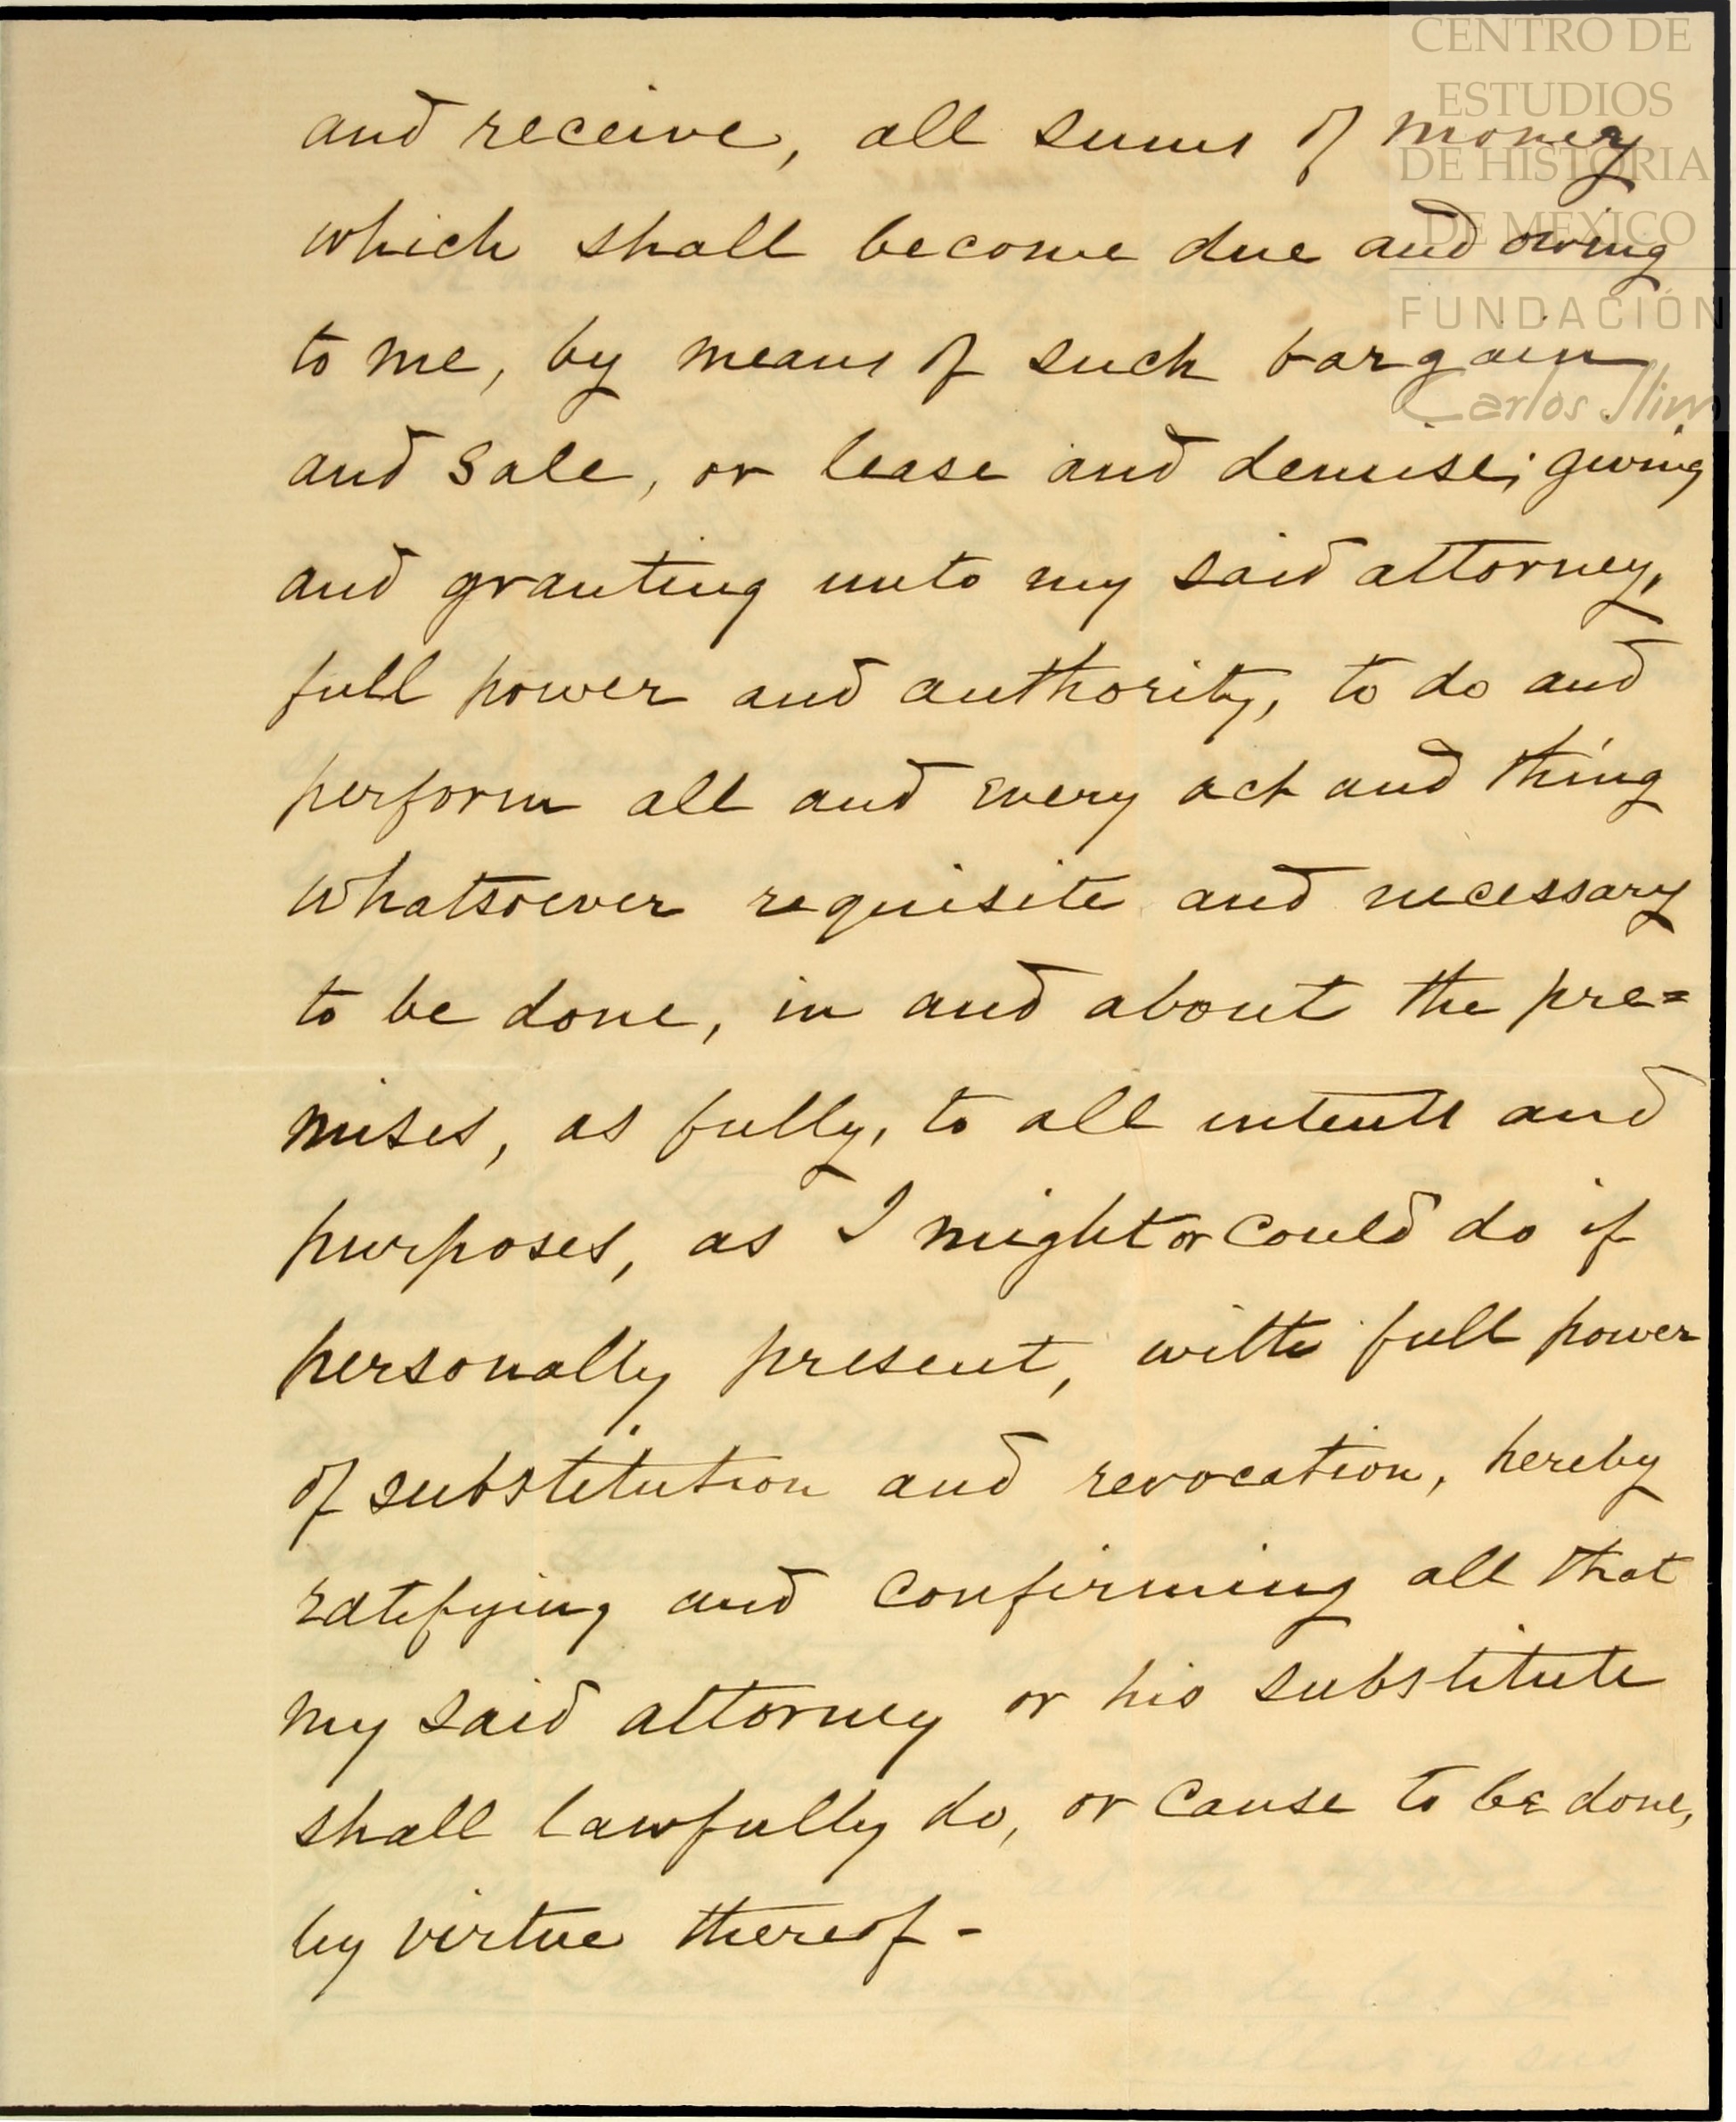 CENTRO DE
ESTUDIOS
DE HISTORIA
DE MÉXICO
FUNDACIÓN
Carlos Slim
and receive, all sums of money
which shall become due and owing
to me, by means of such bargain
and sale, or lease and demise; giving
and granting unto my said attorney,
full power and authority, to do and
perform all and every act and thing
whatsoever requisite and necessary
to be done, in and about the pre=
mises, as fully, to all intents and
purposes, as I might or could do if
personally present, with full power
of substitution and revocation, hereby
ratifying and confirming all that
my said attorney or his substitute
shall lawfully do, or cause to be done,
by virtue thereof -